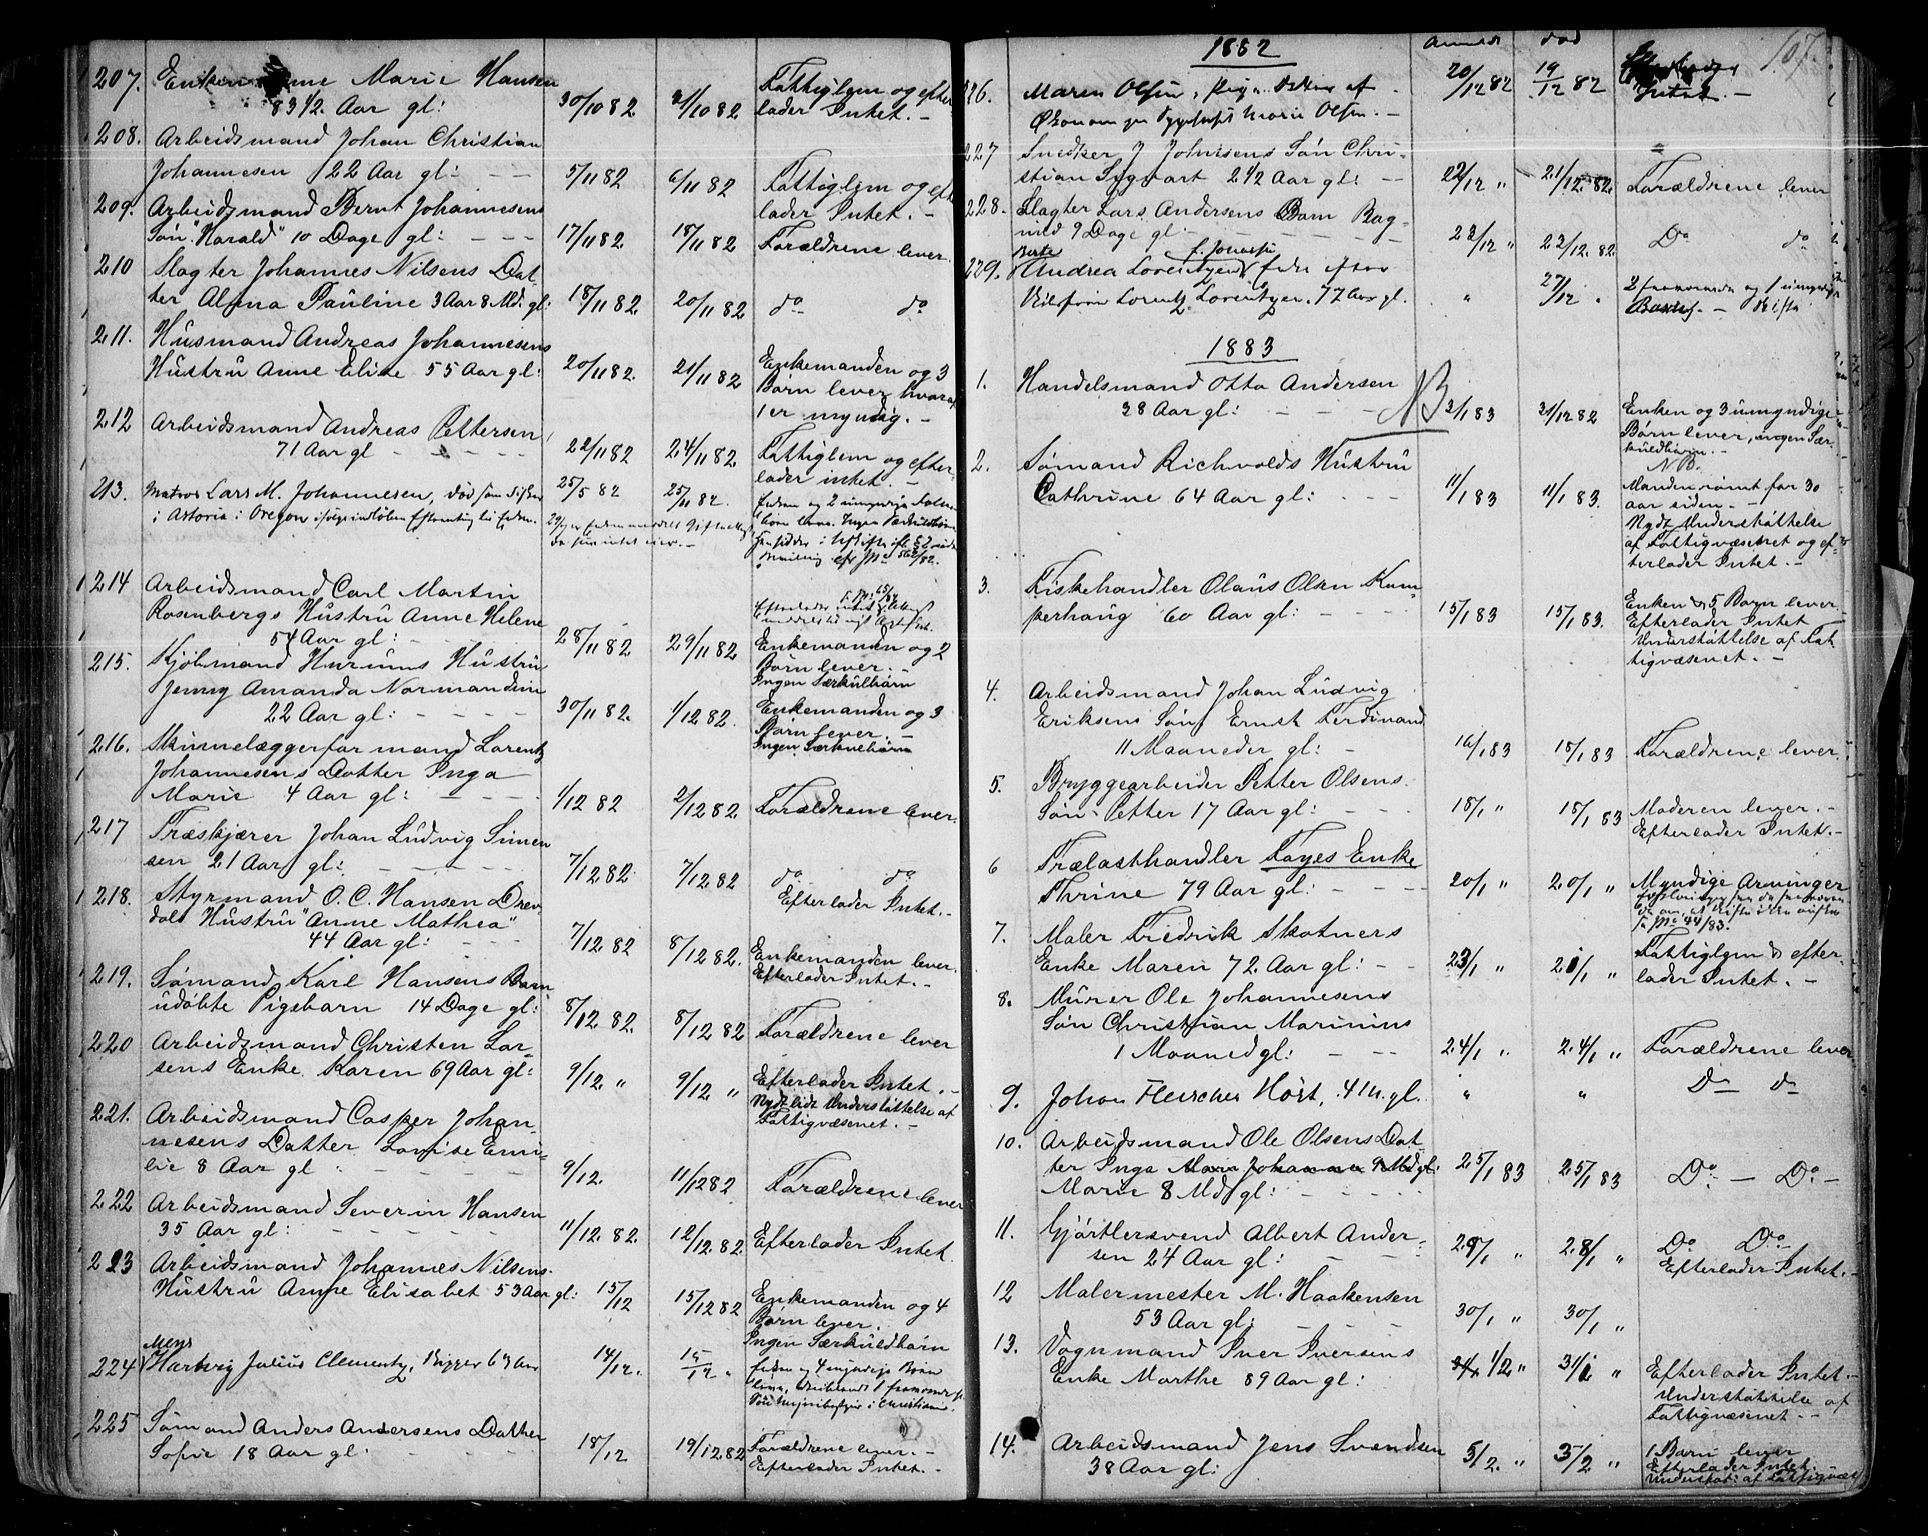 207. Enken Anne Marie Hansen
83 1/2 Aar gl: 30/10 82 31/10 82 Fattiglem og efter
lader Intet. –
208. Arbeidsmand Johan Christian
Johannesen 22 Aar gl: – – 5/11 82 6/11 82 Fattiglem og eft
lader Intet. –
209. Arbeidsmand Bernt Johannesens
Søn "Harald" 10 Dage gl: – – – 17/11 82 18/11 82 Forældrene lever
210 Slagter Johannes Nilsens Dat
ter Alma Pauline 3 Aar 8 Md: gl: 18/11 82. 20/11 82 do do
211. Husmand Andreas Johannesens
Hustru Anne Elise 55 Aar gl: 20/11 82. 21/11 82 Enkemanden og 3
Børn lever hvoraf
1 er myndig. –
212 Arbeidsmand Andreas Pettersen
71 Aar gl – – – – – 22/11 82 24/11 82 Fattiglem og efter
lader intet. –
213. Matros Lars M. Johannesen, død som Fisker
i Astoria i Oregon 25/5 82 25/11 82. Enken og 2 umyndige
214 Arbeidsmand Carl Martin
Rosenbergs Hustru Anne Helene
54 Aar gl: – – 28/11 82 29/11 82 Enkemanden og 2
Børn lever. –
Ingen Særkulbørn
215. Kjøbmand Hurums Hustru
Jenny Amanda Normandin
22 Aar gl: – – – – 30/11 82. 1/12 82. Enkemanden og 3
Børn lever. –
Ingen Særkulbørn
216. Skinnelæggerformand Lorentz
Johannesens Datter Inga
Marie 4 Aar gl: – – – 1/12 82 2/12 82. Forældrene lever.
217 Træskjærer Johan Ludvig Simen
sen 21 Aar gl: – – – 7/12 82 7/12 82 do do
Efterlader Intet. –
218. Styrmand O. C. Hansen Drev
dals Hustru "Anne Mathea"
44 Aar gl: – – – 7/12 82 8/12 82. Enkemanden lever.
Efterlader Intet. –
219. Sømand Karl Hansens Barn
udøbte Pigebarn 14 Dage gl: 8/12. 82. 8/12 82 Forældrene lever
220 Arbeidsmand Christen Lar-
sens Enke Karen 69 Aar gl: 9/12 " 9/12 " Efterlader Intet. –
Nydt lidt Understøttelse af
Fattigvæsenet. –
221. Arbeidsmand Casper Johan-
nesens Datter Lovise Emi-
lie 8 Aar gl – – – – 9/12. 11/12 82 Forældrene lever
222 Arbeidsmand Severin Hansen
35 Aar gl: – – – – 11/12. 82. 12/12. 82. Efterlader Intet.
223 Arbeidsmand Johannes Nilsens
Hustru Anne Elisabet 53 Aar gl: 15/12 15/12 82 Enkemanden og 4
Børn lever.
Ingen Særkuldbørn
Mens
224 Hartvig Julius Clementz, Rigger 67 Aar 14/12. 15/12 " Enken og 4 myndige Børn
225 Sømand Anders Andersens Datter
Sofie 18 Aar gl: – – – 18/12 19/12. 82 Forældrene lever. –
Efterlader Intet. –
107.
1882 Anmeldt død
226. Maren Olsen, Datter af
Marie Olsen. – 20/12 82 19/12 82 Intet. –
227 Snedker J Johnsens Søn Chri-
stian Sigvart 2 1/2 Aar gl: – 22/12 " 21/12. 82. Forældrene lever
228. Slagter Lars Andersens Barn Rag-
nild 9 Dage gl – – – – – 23/12 " 22/12. 82. Do do
Berte
229. Andrea Lorentzen Enke efter
Lorentz Lorentzen. 77 Aar gl. " 27/12 "
1883
1. Handelsmand Otto Andersen
28 Aar gl: – – – NB 2/1 83 31/12 82 Enken og 3 umyndige
Børn lever, ingen Sær-
kuldbørn. –
N.B.
2. Sømand Richvolds Hustru
Cathrine 64 Aar gl: – – – 11/1 83 11/1 83. Manden rømt for 30
aar siden. –
Nydt Understøttelse
af Fattigvæsenet og ef-
terlader Intet. –
3. Fiskehandler Olaus Olsen Kam-
perhaug 60 Aar gl: – – 15/1 83 15/1 83. Enken & 5 Børn lever.
Efterlader Intet
Understøttelse af Fat-
tigvæsenet. –
4. Arbeidsmand Johan Ludvig
Eriksens Søn Ernst Ferdinand
11 Maaneder gl: – 16/1 83 15/1 83 Forældrene lever.
5. Bryggearbeider Petter Olsens
Søn Petter 17 Aar gl: – – 18/1 " 18/1 83 Moderen lever. –
Efterlader Intet. –
6 Trælasthandler Foyes Enke
Thrine 79 Aar gl: – – – 20/1 " 20/1 " Myndige Arvinger
44/83.
7. Maler Fredrik Skotners
Enke Maren 72 Aar gl: – – 23/1 " 21/1 " Fattiglem & efter-
lader Intet. –
8. Murer Ole Johannesens
Søn Christian Marinius
1 Maaned gl: – – – 24/1 " 24/1 " Forældrene lever
9. Johan Fleischer Høst, 4 M. gl. " " Do do
10. Arbeidsmand Ole Olsens Dat-
ter Inga Maria Johanna 9 Md gl:
Marie 8 Md gl: – – – 25/1 83 25/1 83 Do – Do –
11. Gjørtlersvend Albert Ander-
sen 24 Aar gl: – – 29/1 " 28/1 " Do Do
Efterlader Intet. –
12 Malermester M. Haakensen
53 Aar gl: – – – 30/1 " 30/1 "
13. Vognmand Iver Iversens
Enke Marthe 89 Aar gl: 1/2 " 31/1 " Efterlader Intet. –
Understøttelse af
Fattigvæsenet. –
14. Arbeidsmand Jens Svendsen
38 Aar gl: 5/2. " 3/2 " 1 Barn lever
Efterlader Intet.
Understøt: af Fattigvæs